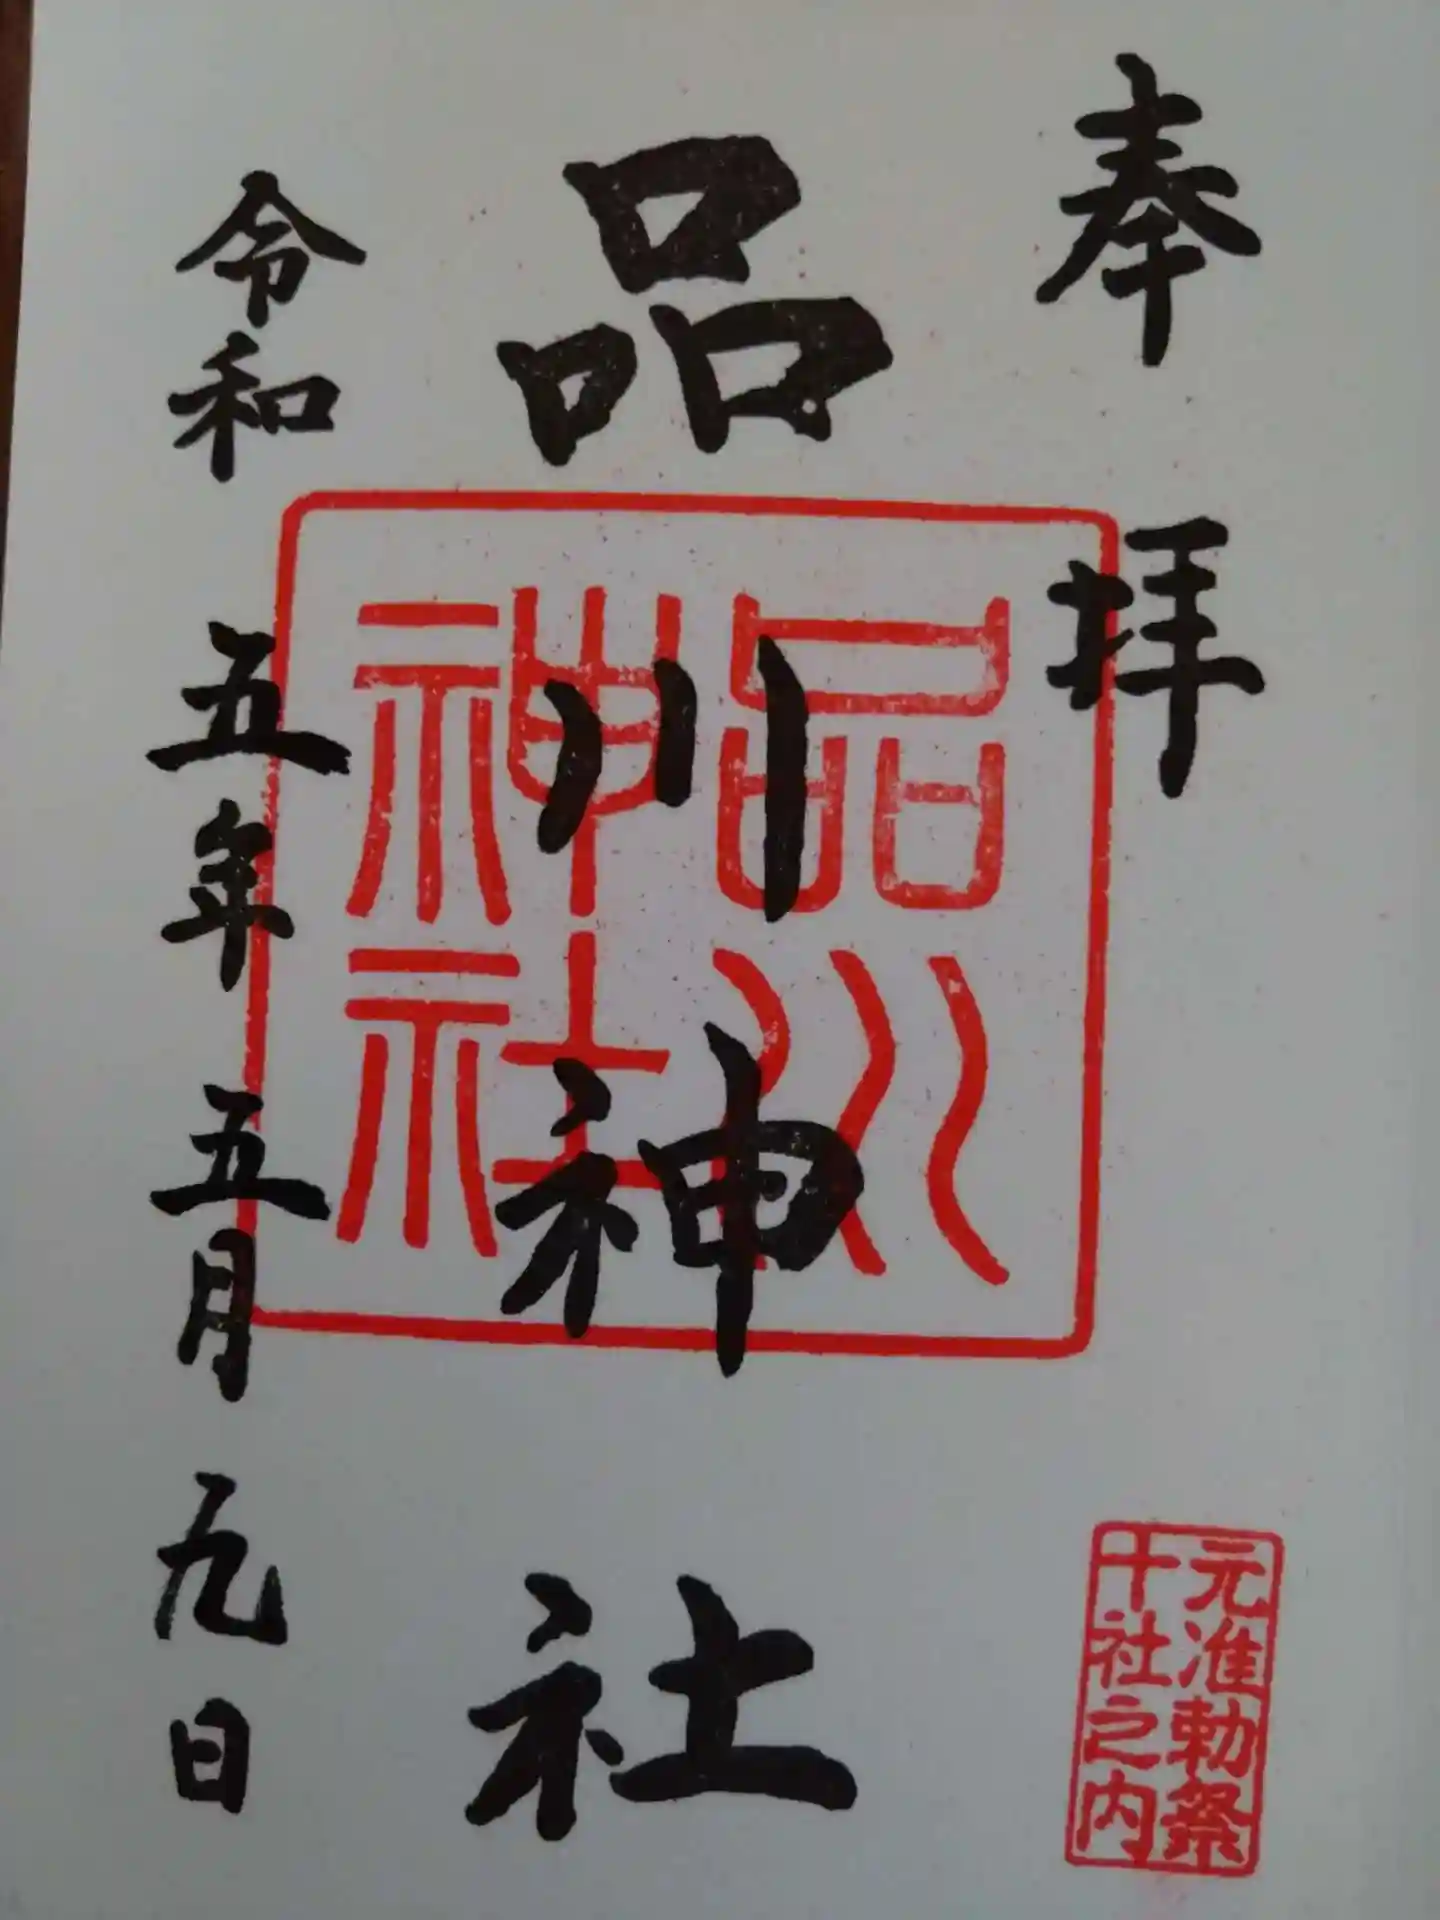 奉拝
元准勅祭
十社之内
品川神社
品川
神社
令和五年五月九日